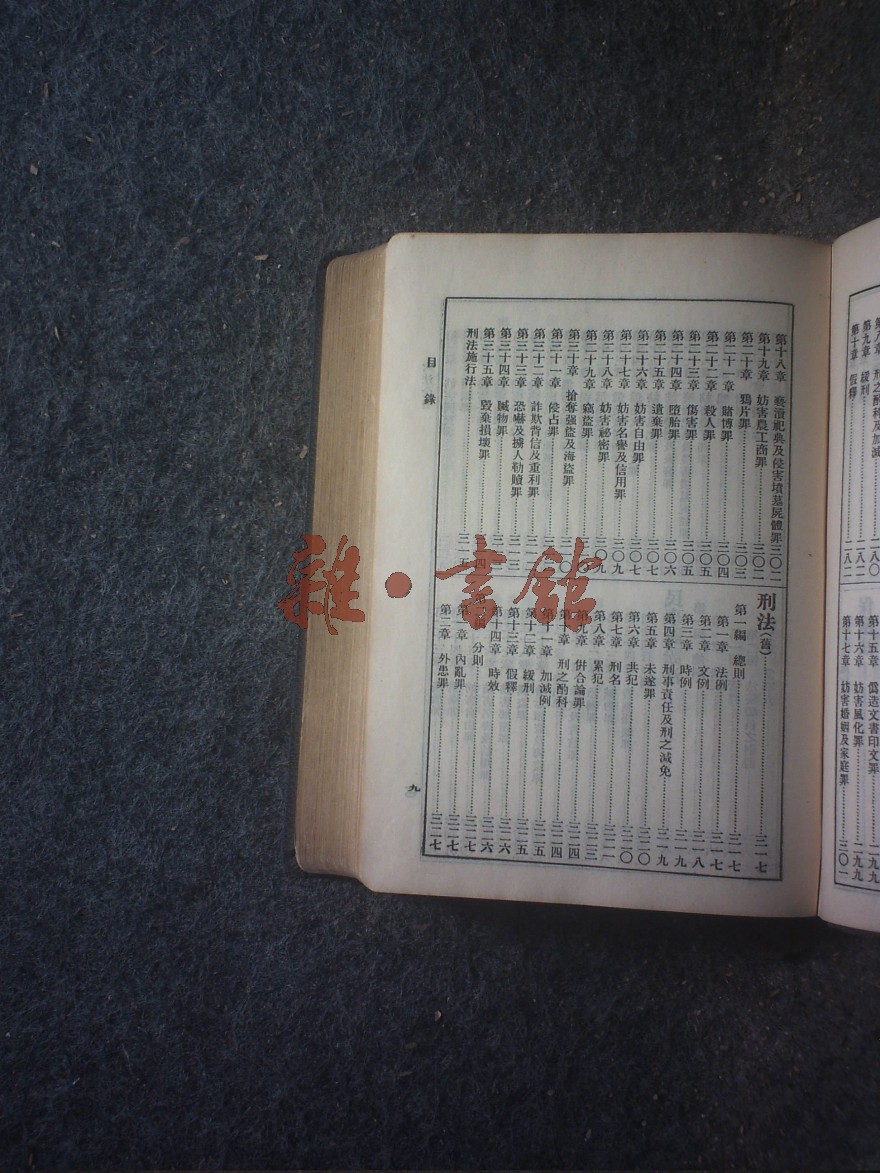 第八章 刑之酌科及加減 二八〇
第九章 緩刑 二八二
第十章 假釋 二八二
第十五章 僞造文書印文罪 二九九
第十六章 妨害風化罪 二九九
第十七章 妨害婚姻及家庭罪 三〇一
第十八章 褻瀆祀典及侵害墳墓屍體罪 三〇二
第十九章 妨害農工商罪 三〇二
第二十章 鴉片罪 三〇三
第二十一章 賭博罪 三〇四
第二十二章 殺人罪 三〇五
第二十三章 傷害罪 三〇五
第二十四章 墮胎罪 三〇六
第二十五章 遺棄罪 三〇七
第二十六章 妨害自由罪 三〇七
第二十七章 妨害名譽及信用罪 三〇九
第二十八章 妨害祕密罪 三〇九
第二十九章 竊盜罪
第三十章 搶奪强盜及海盜罪
第三十一章 侵占罪
第三十二章 詐欺背信及重利罪
第三十三章 恐嚇及擄人勒贖罪
第三十四章 贓物罪
第三十五章 毀棄損壞罪
刑法施行法
刑法(舊) 三一七
第一編 總則 三一七
第一章 法例 三一七
第二章 文例 三一八
第三章 時例 三一九
第四章 刑事責任及刑之減免 三一九
第五章 未遂罪 三二〇
第六章 共犯 三二〇
第七章 刑名 三二一
第八章 累犯 三二三
第九章 併合論罪 三二四
第十章 刑之酌科 三二四
第十一章 加減例 三二五
第十二章 緩刑 三二五
第十三章 假釋 三二六
第十四章 時效 三二六
分則 三二七
第一章 內亂罪 三二七
第二章 外患罪 三二七
目錄
九
雜·書館